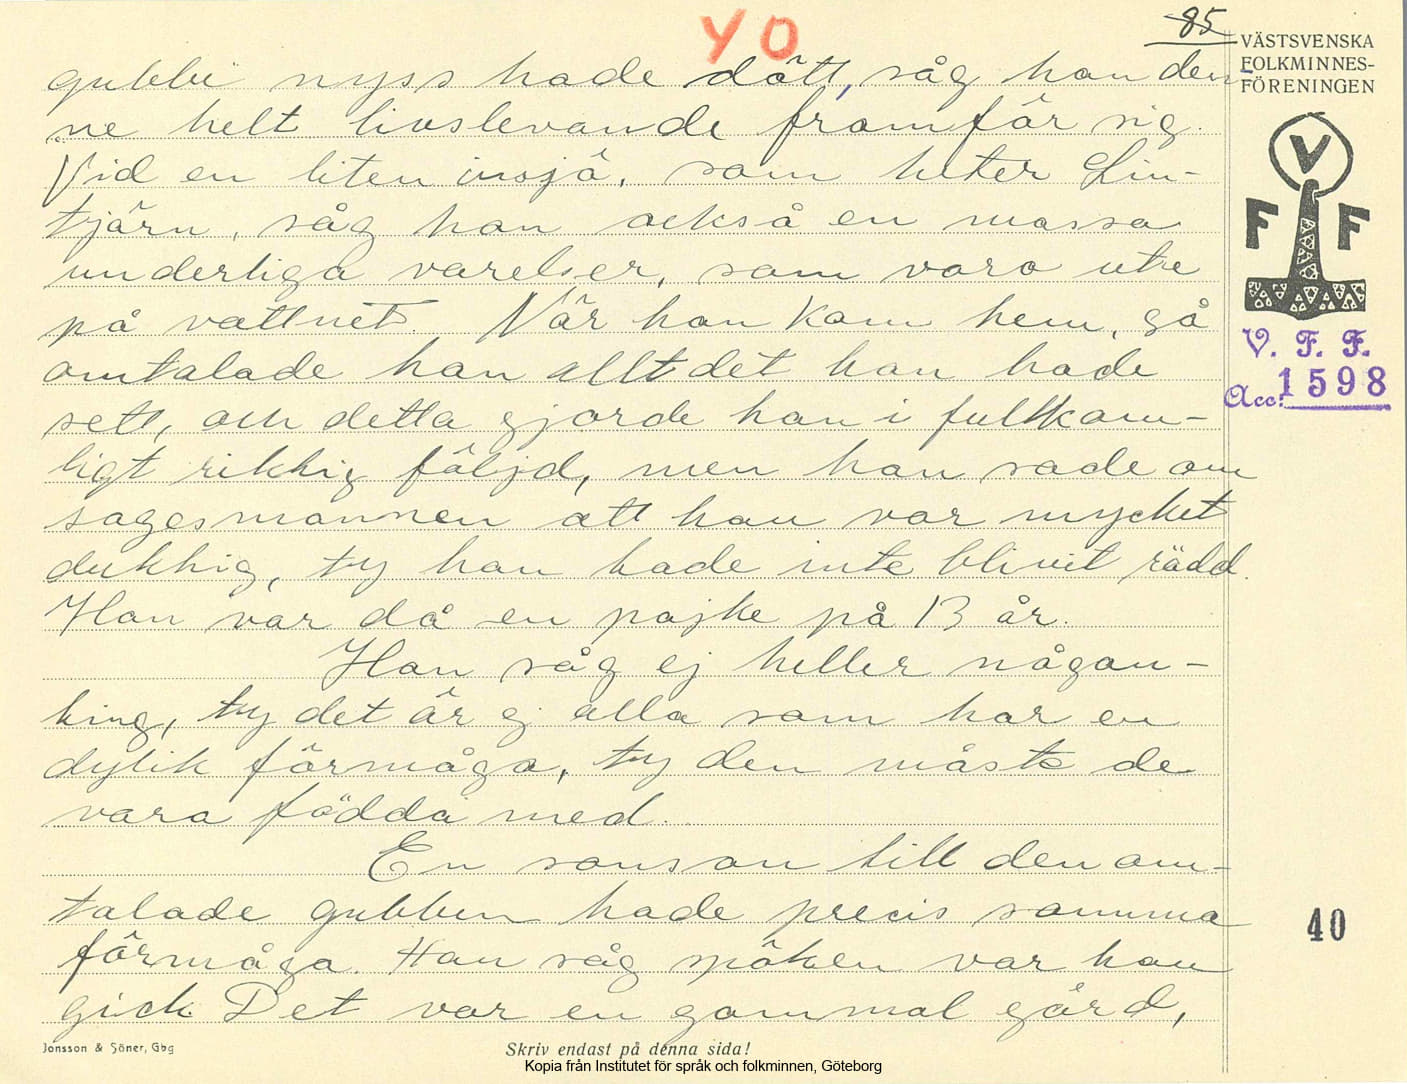 YO
85
VÄSTSVENSKA
FOLKMINNES-
FÖRENINGEN
V
F F
V. F. F.
Acc: 1598
gubbe nyss hade dött, såg han den-
ne helt livslevande framför sig.
Vid en liten insjö, som heter Lin-
tjärn, såg han också en massa
underliga varelser, som voro ute
på vattnet. När han kom hem, så
omtalade han allt det han hade
sett, och detta gjorde han i fullkom-
ligt riktig följd, men han sade om
sagesmannen att han var mycket
duktig, ty han hade inte blivit rädd.
Han var då en pojke på 13 år.
Han såg ej heller någon-
ting, ty det är ej alla som har en
dylik förmåga, ty den måste de
vara födda med.
En sonson till den om-
talade gubben hade precis samma
förmåga. Han såg spöken var han
gick. Det var en gammal gård,
40
Jonsson & Söner, Gbg
Skriv endast på denna sida!
Kopia från Institutet för språk och folkminnen, Göteborg